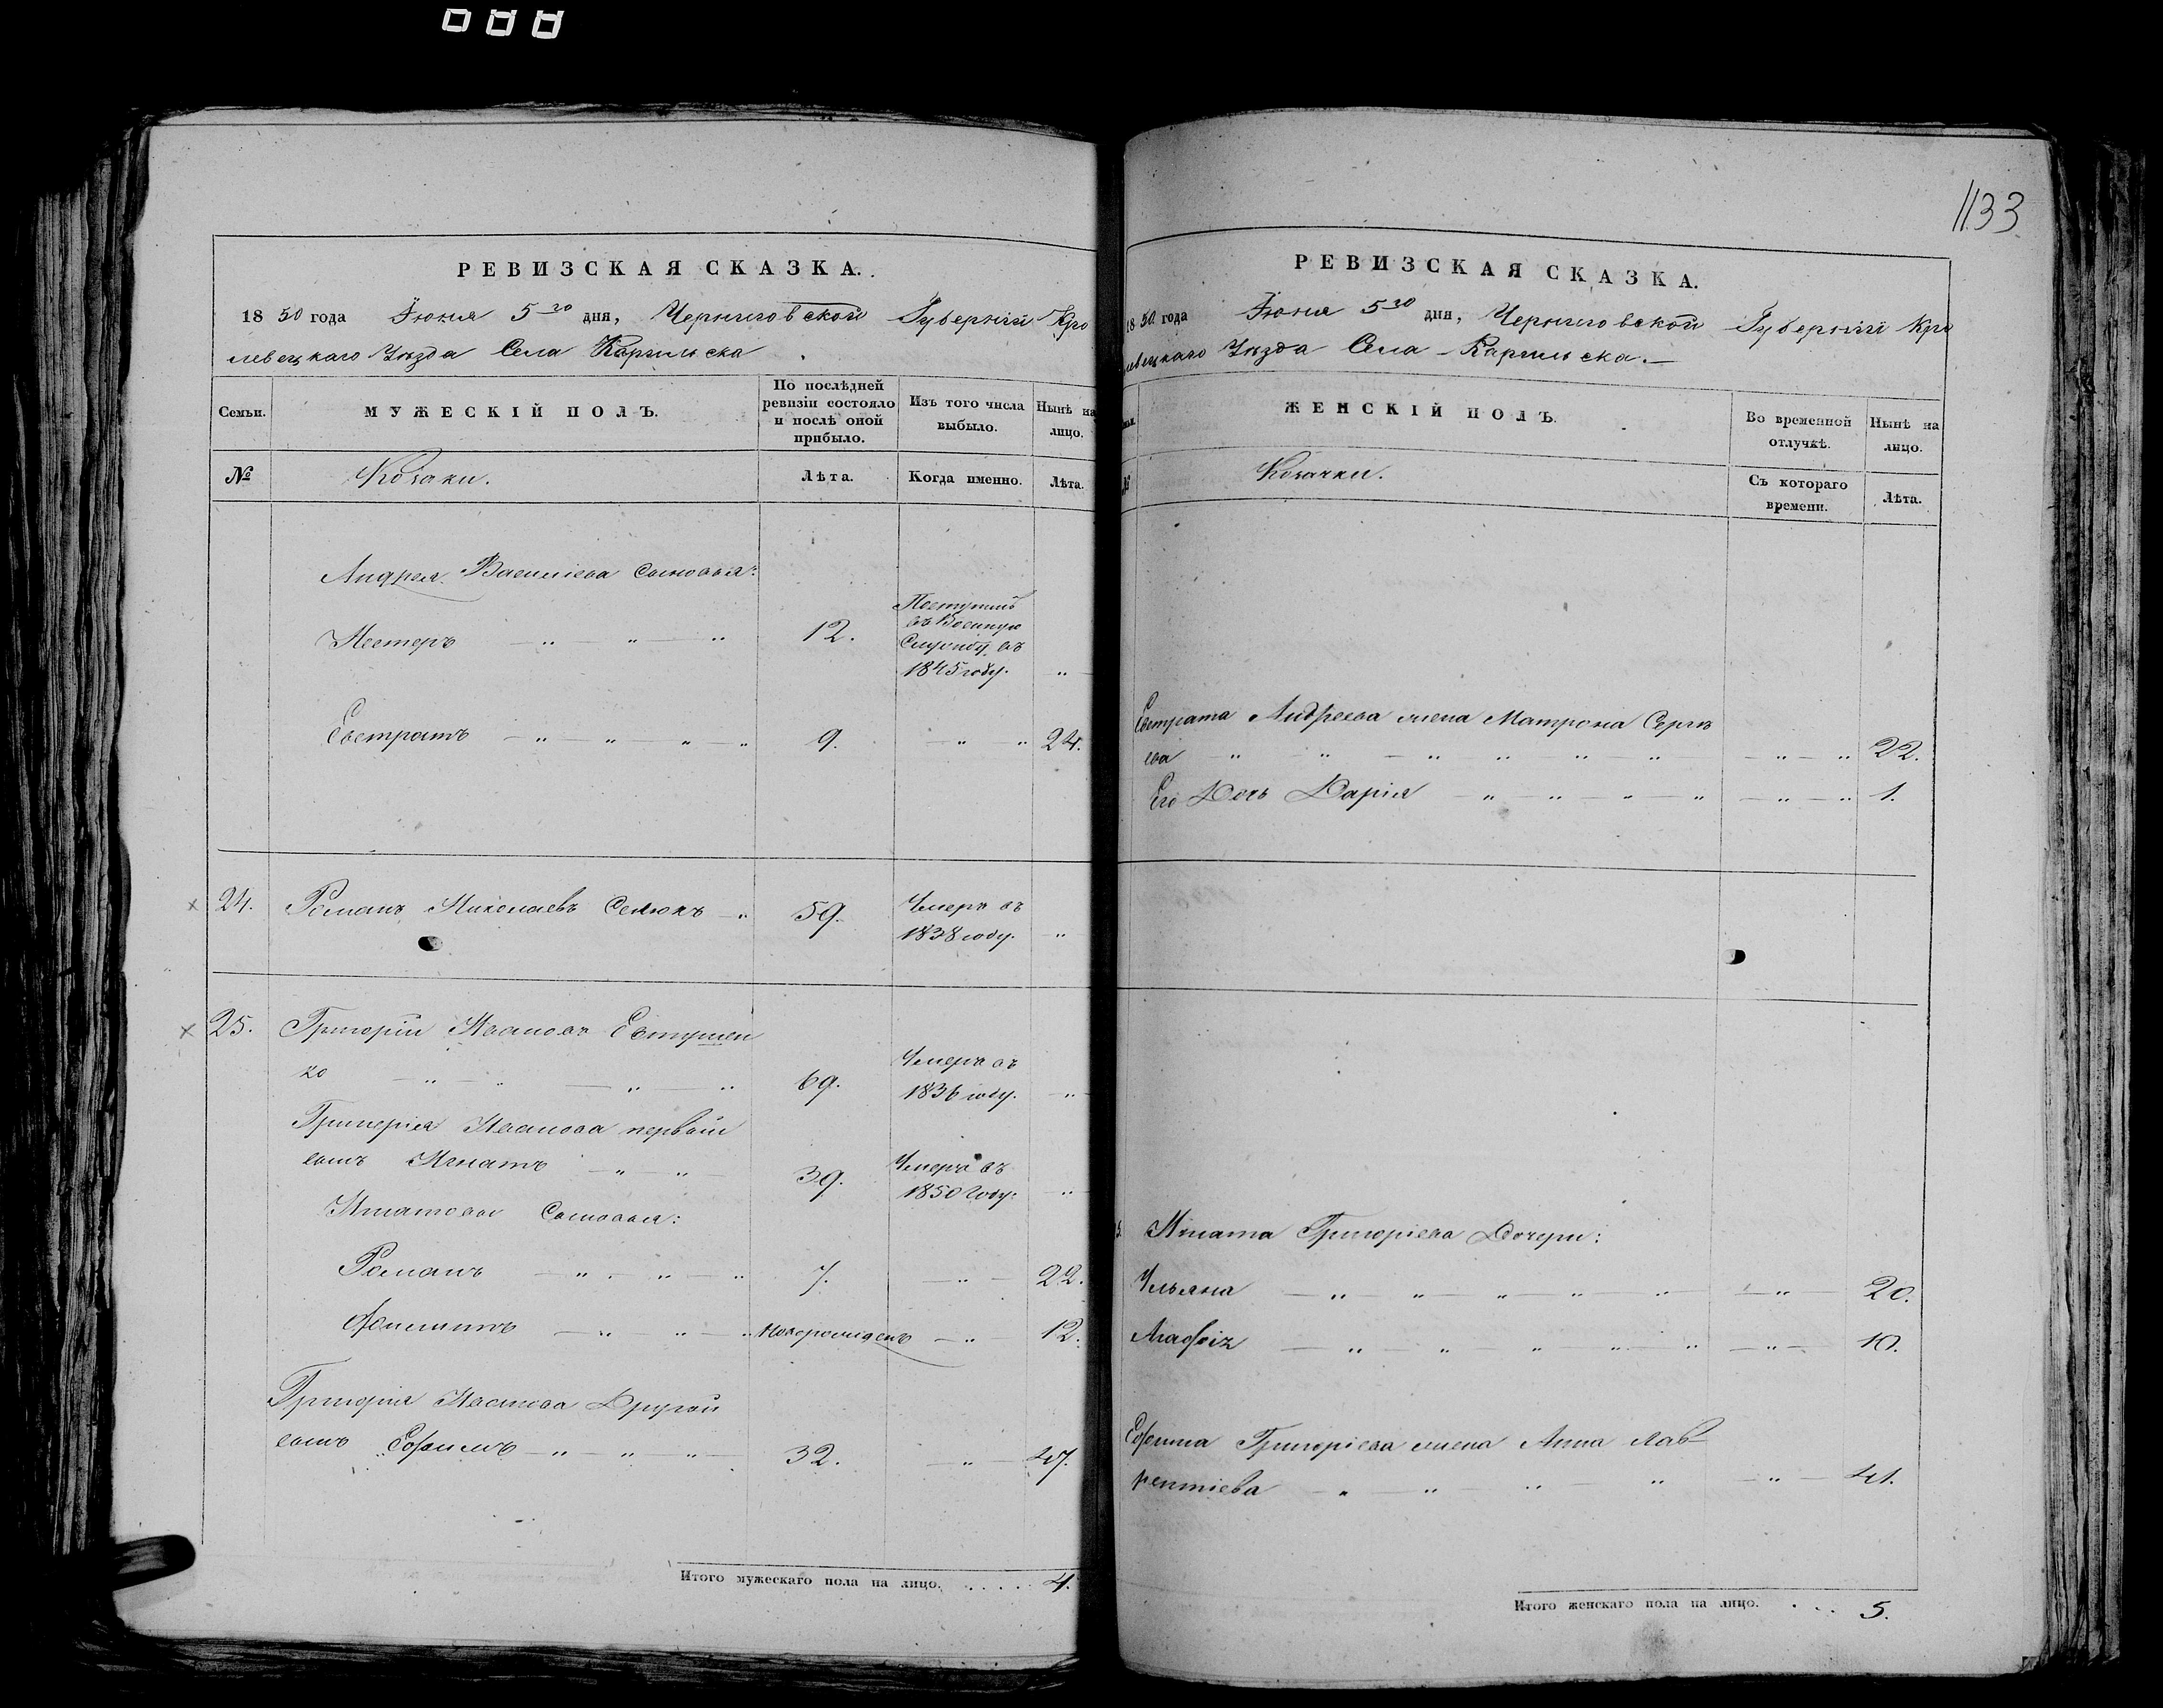 1133
РЕВИЗСКАЯ СКАЗКА.
1850 года Іюня 5го дня, Черниговской Губерніи Кро
левецкаго Уѣзда Села Каргильска
Семьи.
МУЖЕСКІЙ ПОЛЪ.
По послѣдней
ревизіи состояло
и послѣ оной
прибыло.
Изъ того числа
выбыло.
Нынѣ на
лицо.
№
Козаки.
Лѣта.
Когда именно.
Лѣта.
Андрея Василіева Сыновья:
Нестеръ 12. Поступилъ
въ Военную
Службу въ
1845 году.
Евстратъ 9. 24.
24. Романъ Николаевъ 59. Умеръ въ
1838 году.
25. Григорій Ивановъ Евтушен
ко 69. Умеръ въ
1836 году.
Григорія Иванова первый
сынъ Игнатъ 39. Умеръ въ
1850 году.
Игнатовы Сыновья:
Романъ 7. 22.
Филиппъ новорожденъ 12.
Григорія Иванова Другой
сынъ Ефимъ 32. 47.
Итого мужескаго пола на лицо. 4.
РЕВИЗСКАЯ СКАЗКА.
1850 года Іюня 5го дня, Черниговской Губерніи Кро
левецкаго Уѣзда Села Каргильска.
ЖЕНСКІЙ ПОЛЪ.
Во временной
отлучкѣ.
Нынѣ на
лицо.
№
Козачки.
Съ котораго
времени.
Лѣта.
Евстрата Андреева жена Матрона Сергѣ
ева 22.
Его Дочь Дарія 1.
Игната Григоріева Дочери:
Ульяна 20.
Агафія 10.
Ефима Григоріева жена Анна Лав-
рентіева 41.
Итого женскаго пола на лицо. 5.